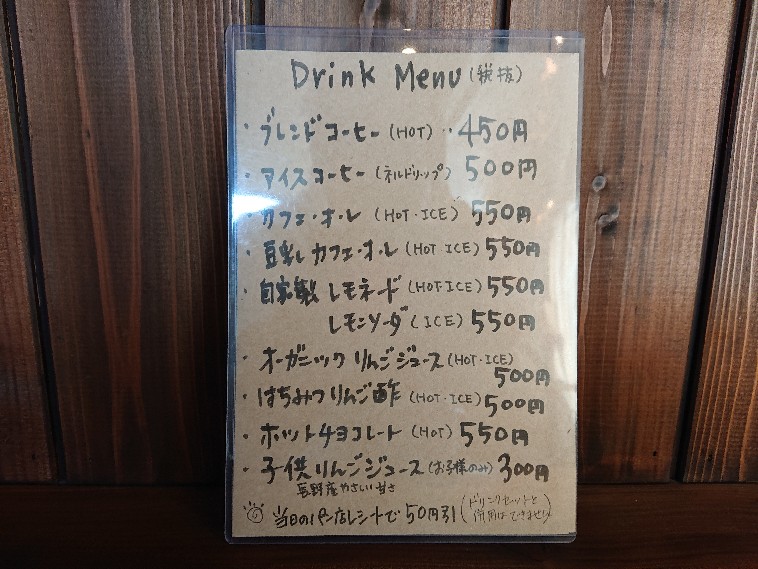 Drink Menu (税抜)
・ブレンドコーヒー (HOT) ・・ 450円
・アイスコーヒー (ネルドリップ) 500円
・カフェ・オ・レ (HOT・ICE) 550円
・豆乳カフェ・オ・レ (HOT・ICE) 550円
・自家製 レモネード (HOT・ICE) 550円
レモンソーダ (ICE) 550円
・オーガニック りんごジュース (HOT・ICE)
500円
・はちみつりんご酢 (HOT・ICE) 500円
・ホットチョコレート (HOT) 550円
・子供りんごジュース (お子様のみ) 300円
長野産やさしい甘さ
当日のパン店レシートで 50円引 (ドリンクセットと
併用はできません)